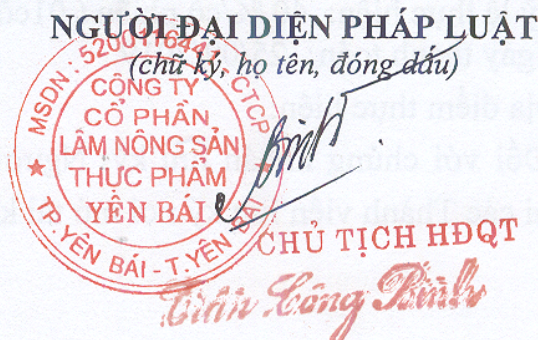 NGƯỜI ĐẠI DIỆN PHÁP LUẬT
(chữ ký, họ tên, đóng dấu)
MSDN: 5200116441 - CTCP
CÔNG TY
CỔ PHẦN
LÂM NÔNG SẢN
THỰC PHẨM
YÊN BÁI
TP.YÊN BÁI - T.YÊN BÁI
CHỦ TỊCH HĐQT
Trần Công Bình